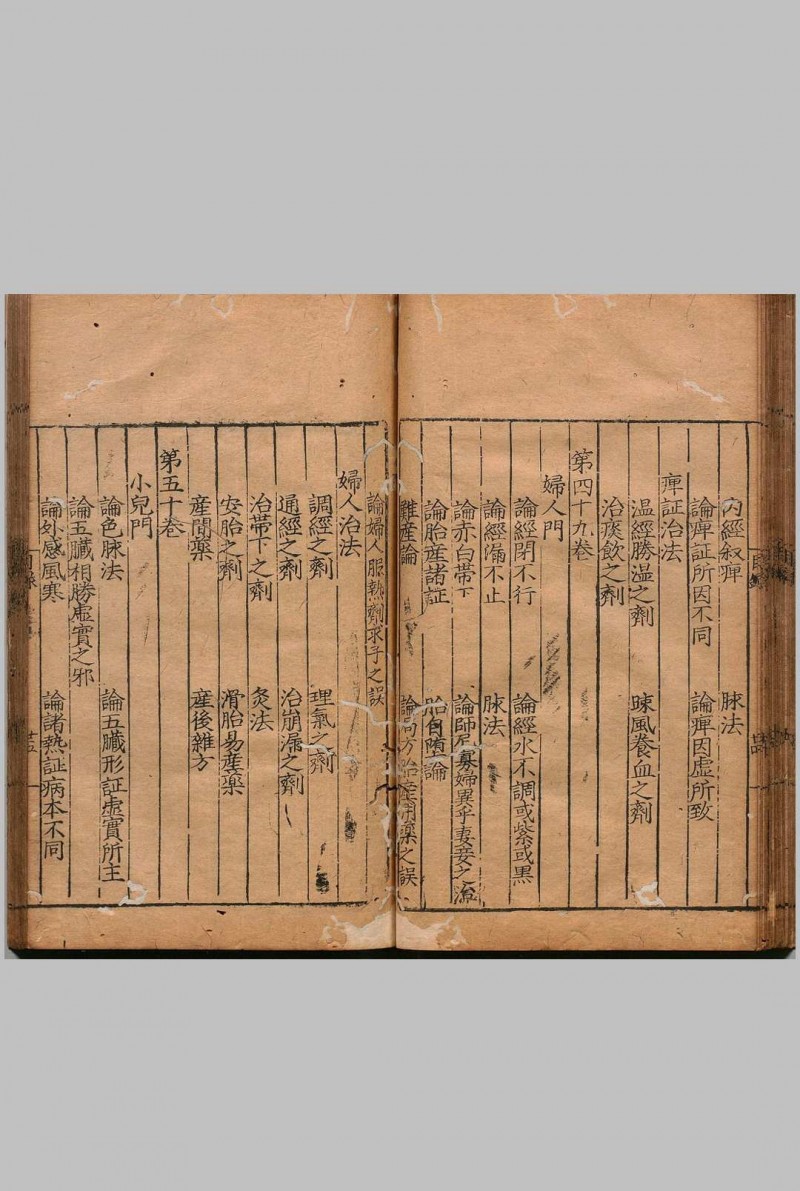 内經叙痺 脉法
論痺証所因不同 論痺因虛所致
痺証治法
温經勝湿之劑 疎風養血之劑
治痰飲之劑
第四十九卷
婦人門
論經閉不行 論經水不調或紫或黒
論經漏不止 脉法
論赤白帯下 論師尼寡婦異乎妻妾之治
論胎產諸証 胎自墮論
難産論 論局方胎産用藥之誤
論婦人服熱劑求子之誤
婦人治法
調經之劑 理氣之劑
通經之劑 治崩漏之劑
治帯下之劑 灸法
安胎之劑 滑胎易産藥
産間藥 産後雜方
第五十卷
小兒門
論色脉法 論五臟形証虛實所主
論五臟相勝虛實之邪
論外感風寒 論諸熱証病本不同